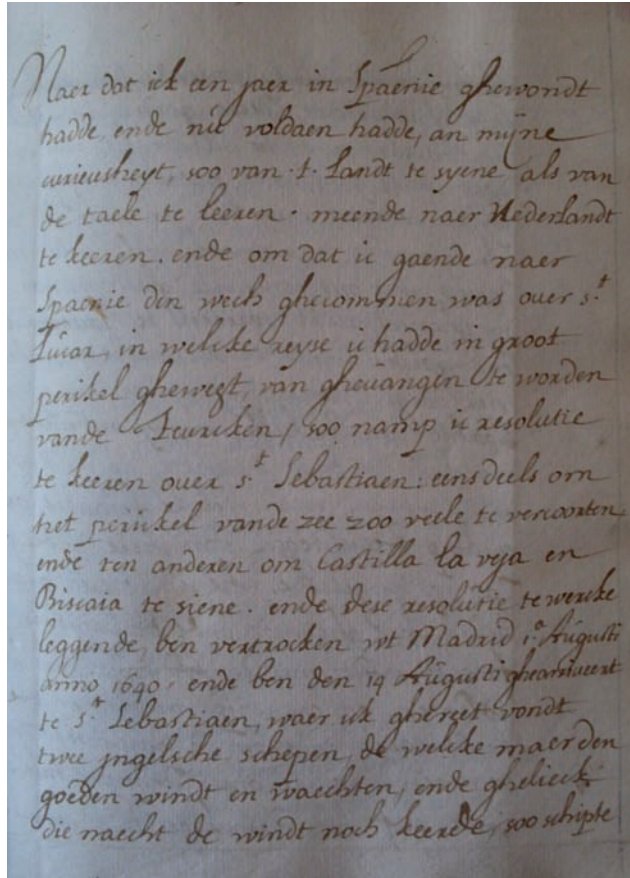 Naer dat ick een jaer in Spaenie ghewondt
hadde, ende nit voldaen hadde, an mijne
curieusheyt, soo van .t. landt te syene als van
de taele te leeren. meende naer Nederlandt
te keeren. ende om dat ic gaende naer
Spaenie den wech ghecommen was over s.t
Lucar, in welcke reyse ic hadde in groot
perikel gheweest, van ghevangen te worden
vande Teurcken, soo namp ic resolutie
te keeren over s.t Sebastiaen: eensdeels om
het perijkel vande zee zoo veele te vercorten
ende ten anderen om Castilla la veja en
Biscaia te siene. ende dese resolutie te wercke
leggende, ben vertrocken wt Madrid 1.o Augusti
anno 1640. ende ben den 19 Augusti ghearriveert
te s.t Sebastiaen, waer ick ghereet vondt
twee jngelsche schepen, de welcke maer den
goeden windt en waechten, ende ghelieck
die naecht de windt noch keerde, soo schipte